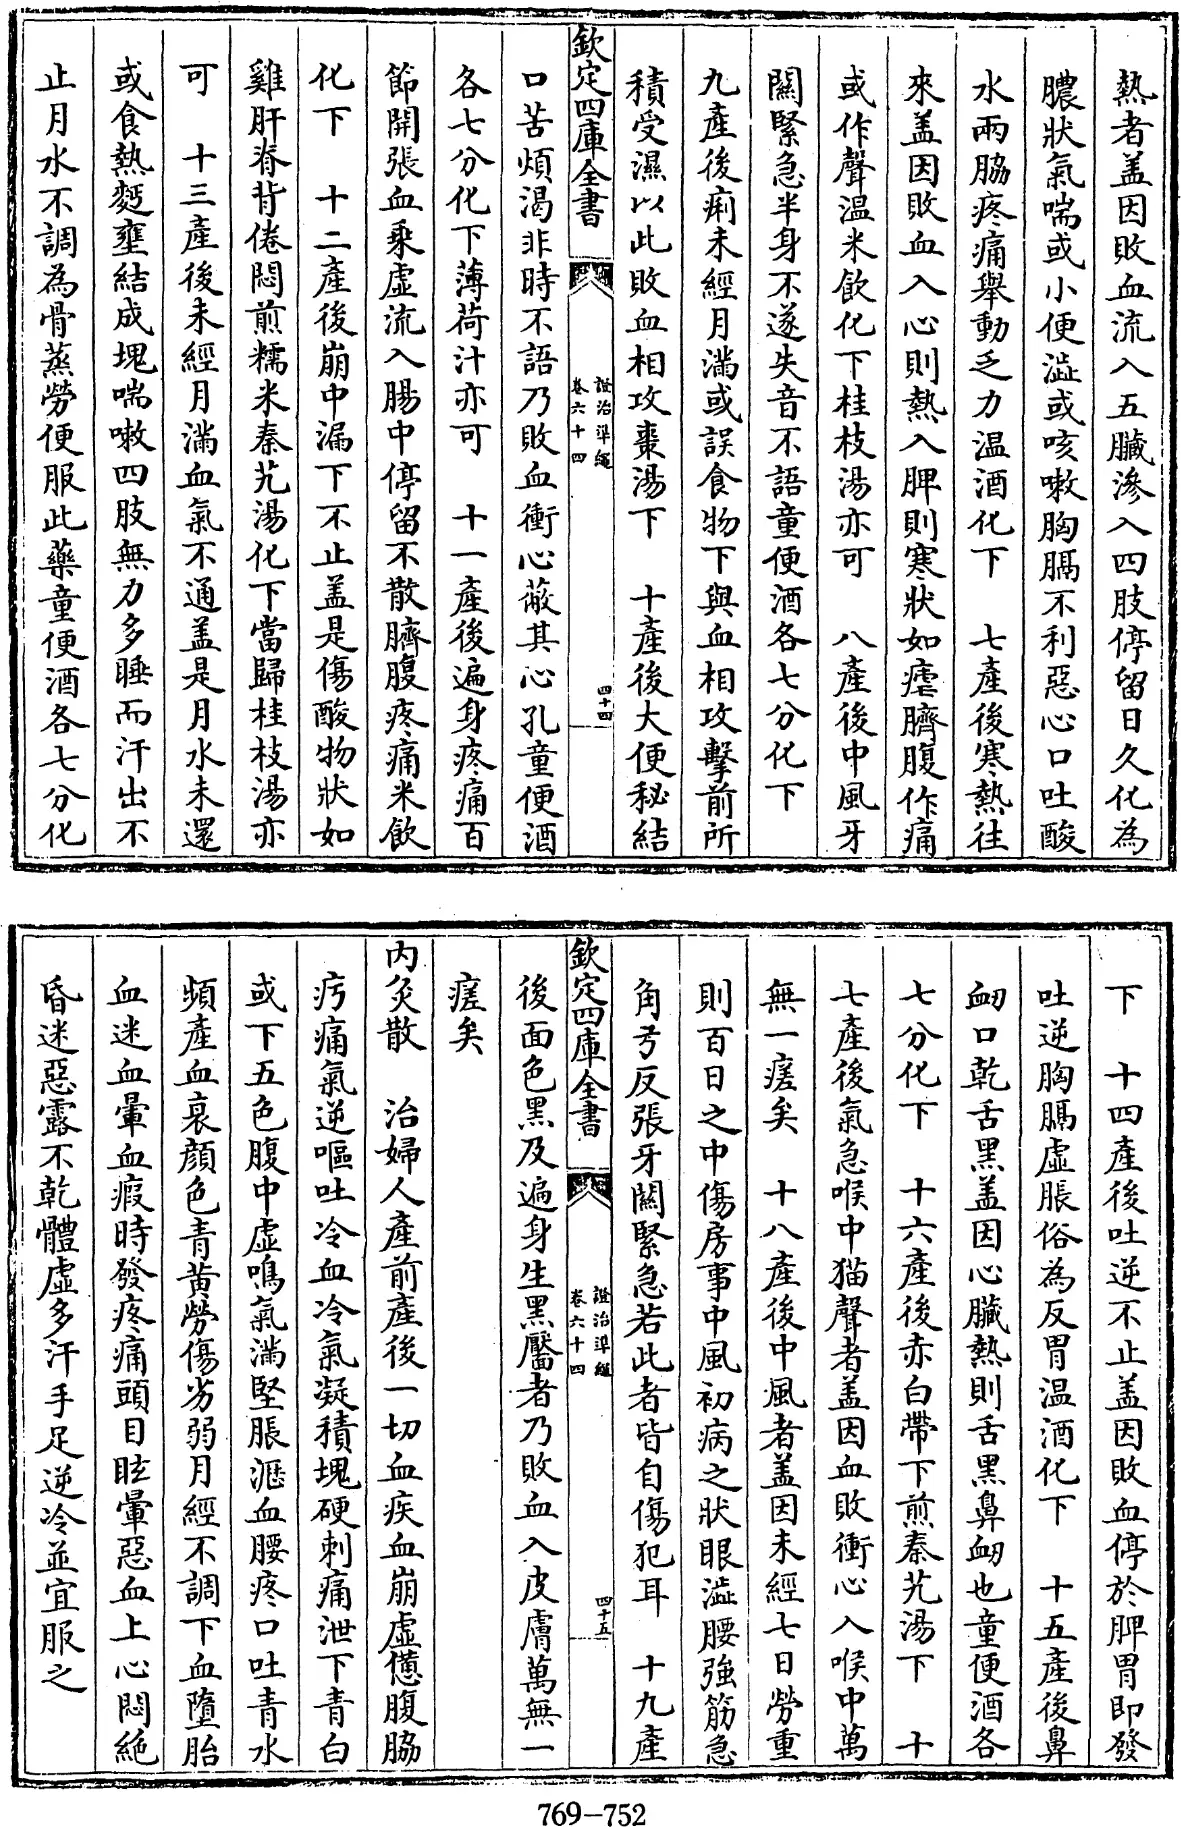 熱者盖因敗血流入五臟滲入四肢停留日久化為
膿狀氣喘或小便澁或咳嗽胸膈不利惡心口吐酸
水兩脇疼痛舉動乏力温酒化下　七產後寒熱往
來盖因敗血入心則熱入脾則寒狀如瘧臍腹作痛
或作聲温米飲化下桂枝湯亦可　八產後中風牙
關緊急半身不遂失音不語童便酒各七分化下
九產後痢未經月滿或誤食物下與血相攻擊前所
積受濕以此敗血相攻棗湯下　十產後大便秘結
欽定四庫全書
證治準繩
卷六十四
四十四
口苦煩渴非時不語乃敗血衝心蔽其心孔童便酒
各七分化下薄荷汁亦可　十一產後遍身疼痛百
節開張血乘虛流入腸中停留不散臍腹疼痛米飲
化下　十二產後崩中漏下不止盖是傷酸物狀如
雞肝脊背倦悶煎糯米秦艽湯化下當歸桂枝湯亦
可　十三產後未經月滿血氣不通盖是月水未還
或食熱麪壅結成塊喘嗽四肢無力多睡而汗出不
止月水不調為骨蒸勞便服此藥童便酒各七分化
下　十四產後吐逆不止盖因敗血停於脾胃即發
吐逆胸膈虛脹俗為反胃温酒化下　十五產後鼻
衂口乾舌黑盖因心臟熱則舌黑鼻衂也童便酒各
七分化下　十六產後赤白帶下煎秦艽湯下　十
七產後氣急喉中猫聲者盖因血敗衝心入喉中萬
無一瘥矣　十八產後中風者盖因未經七日勞重
則百日之中傷房事中風初病之狀眼澁腰強筋急
角弓反張牙關緊急若此者皆自傷犯耳　十九產
欽定四庫全書
證治準繩
卷六十四
四十五
後面色黑及遍身生黑黶者乃敗血入皮膚萬無一
瘥矣
内灸散　治婦人產前產後一切血疾血崩虛憊腹脇
㽲痛氣逆嘔吐冷血冷氣凝積塊硬刺痛泄下青白
或下五色腹中虛鳴氣滿堅脹瀝血腰疼口吐青水
頻產血衰顔色青黄勞傷劣弱月經不調下血墮胎
血迷血暈血瘕時發疼痛頭目眩暈惡血上心悶絶
昏迷惡露不乾體虛多汗手足逆冷並宜服之
769-752